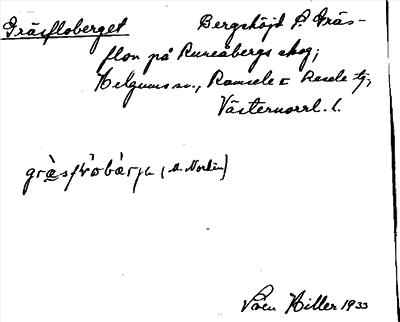 Gräsfloberget Bergshöjd S. Gräs-
flon på Ruseåbergs skog;
Helgums sn., Ramsele o Resele tg,
Västernorrl. l.
(M. Nordin)
Sven Hiller 1933